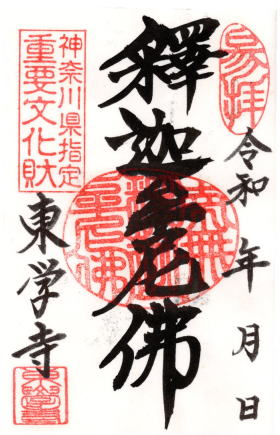 参拝
令和 年 月 日
釋迦牟尼佛
神奈川県指定
重要文化財
東学寺